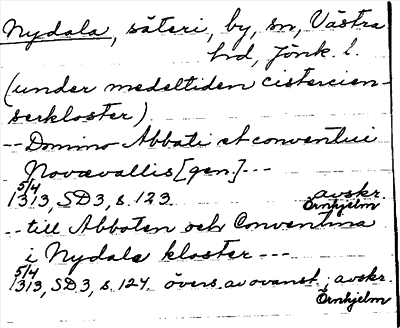 Nydala, säteri, by, sn, Västra
hd, Jönk. l.
(under medeltiden cistercien-
serkloster)
-- Domino Abbati et conventui
Novævallis [gen.] ---
5/4
1313, SD3, s. 123. avskr.
Örnhjelm
-- till Abboten och Conventina
i Nydala kloster ---
5/4
1313, SD3, s. 124 övers. av ovanst., avskr.
Örnhjelm